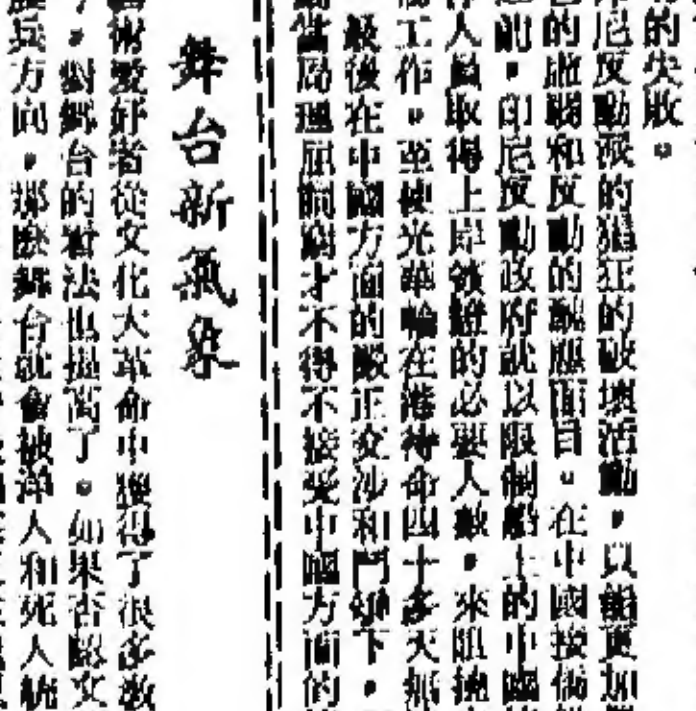 的失敗。
尼反動派的猖狂的破壞活動，只能更加
的虛弱和反動的醜惡面目。在中國接僑
前，印尼反動政府就以限制船上的中國
人員取得上岸證的必要人數，來阻撓
工作。並使光華輪在港待命四十多天無
最後在中國方面的嚴正交涉和鬥爭下，
動當局理屈詞窮才不得不接受中國方面的
舞台新氣象
術愛好者從文化大革命中獲得了很多教
，對舞台的看法也提高了。如果否認文
兵方向，那麼舞台就會被洋人和死人統